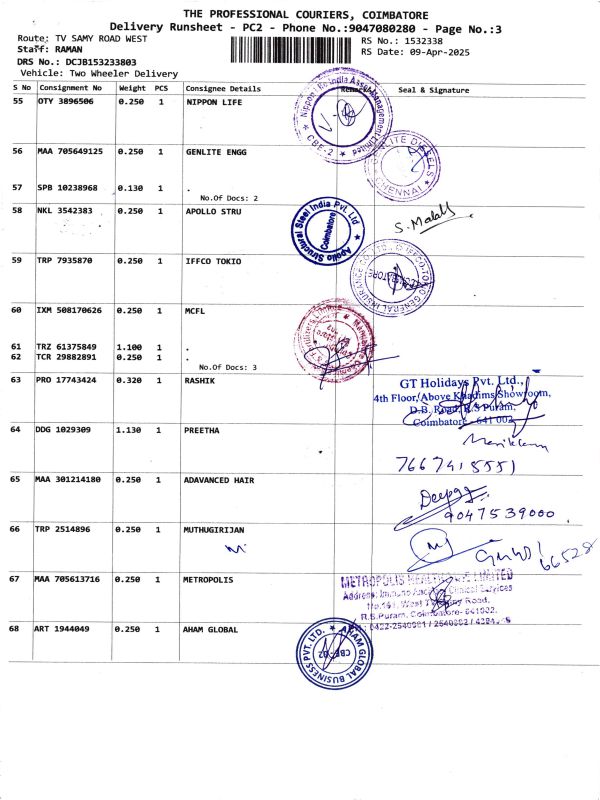 THE PROFESSIONAL COURIERS, COIMBATORE
Delivery Runsheet - PC2 - Phone No.:9047080280 - Page No.:3
Route: TV SAMY ROAD WEST
RS No.: 1532338
Staff: RAMAN
RS Date: 09-Apr-2025
DRS No.: DCJB153233803
Vehicle: Two Wheeler Delivery
S No Consignment No Weight PCS Consignee Details Remarks Seal & Signature
55 OTY 3896506 0.250 1 NIPPON LIFE
Nippon Life India Asset Management Limited
CBE-2
56 MAA 705649125 0.250 1 GENLITE ENGG
GENLITE DIESELS
CHENNAI
57 SPB 10238968 0.130 1 .
No.Of Docs: 2
58 NKL 3542383 0.250 1 APOLLO STRU
Apollo Structural Steel India Pvt. Ltd
Coimbatore
S. Malathy
59 TRP 7935870 0.250 1 IFFCO TOKIO
IFFCO-TOKIO GENERAL INSURANCE CO.
60 IXM 508170626 0.250 1 MCFL
61 TRZ 61375849 1.100 1 .
62 TCR 29882891 0.250 1 .
No.Of Docs: 3
63 PRO 17743424 0.320 1 RASHIK
GT Holidays Pvt. Ltd.,
4th Floor, Above Khadims Showroom,
D.B. Road, R.S Puram,
Coimbatore - 641 002
64 DDG 1029309 1.130 1 PREETHA
7667415551
65 MAA 301214180 0.250 1 ADAVANCED HAIR
9047539000
66 TRP 2514896 0.250 1 MUTHUGIRIJAN
66528
67 MAA 705613716 0.250 1 METROPOLIS
METROPOLIS HEALTHCARE LIMITED
R.S.Puram, Coimbatore- 641002.
68 ART 1944049 0.250 1 AHAM GLOBAL
AHAM GLOBAL BUSINESS PVT. LTD.
CBE-02